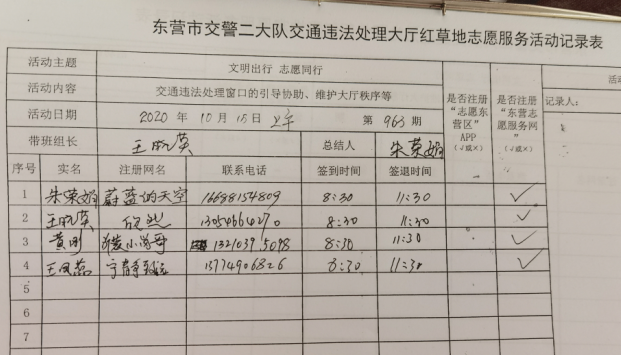 东营市交警二大队交通违法处理大厅红草地志愿服务活动记录表
活动主题 文明出行 志愿同行
活动内容 交通违法处理窗口的引导协助、维护大厅秩序等
活动日期 2020 年 10 月 15 日 上午 第 963 期
带班组长 总结人 朱荣娟
是否注册“志愿东营区”APP（√或×）
是否注册“东营志愿服务网”（√或×）
记录人：
序号 实名 注册网名 联系电话 签到时间 签退时间
1 朱荣娟 蔚蓝的天空 16688154809 8:30 11:30 √
2 欣然 13054664270 8:30 11:30 √
3 黄刚 8:30 11:30 √
4 王凤蕊 宁静致远 13774906826 8:30 11:30 √
5
6
7